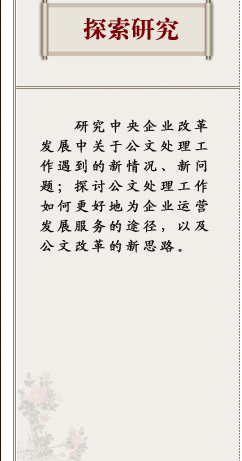 探索研究
研究中央企业改革
发展中关于公文处理工
作遇到的新情况、新问
题；探讨公文处理工作
如何更好地为企业运营
发展服务的途径，以及
公文改革的新思路。